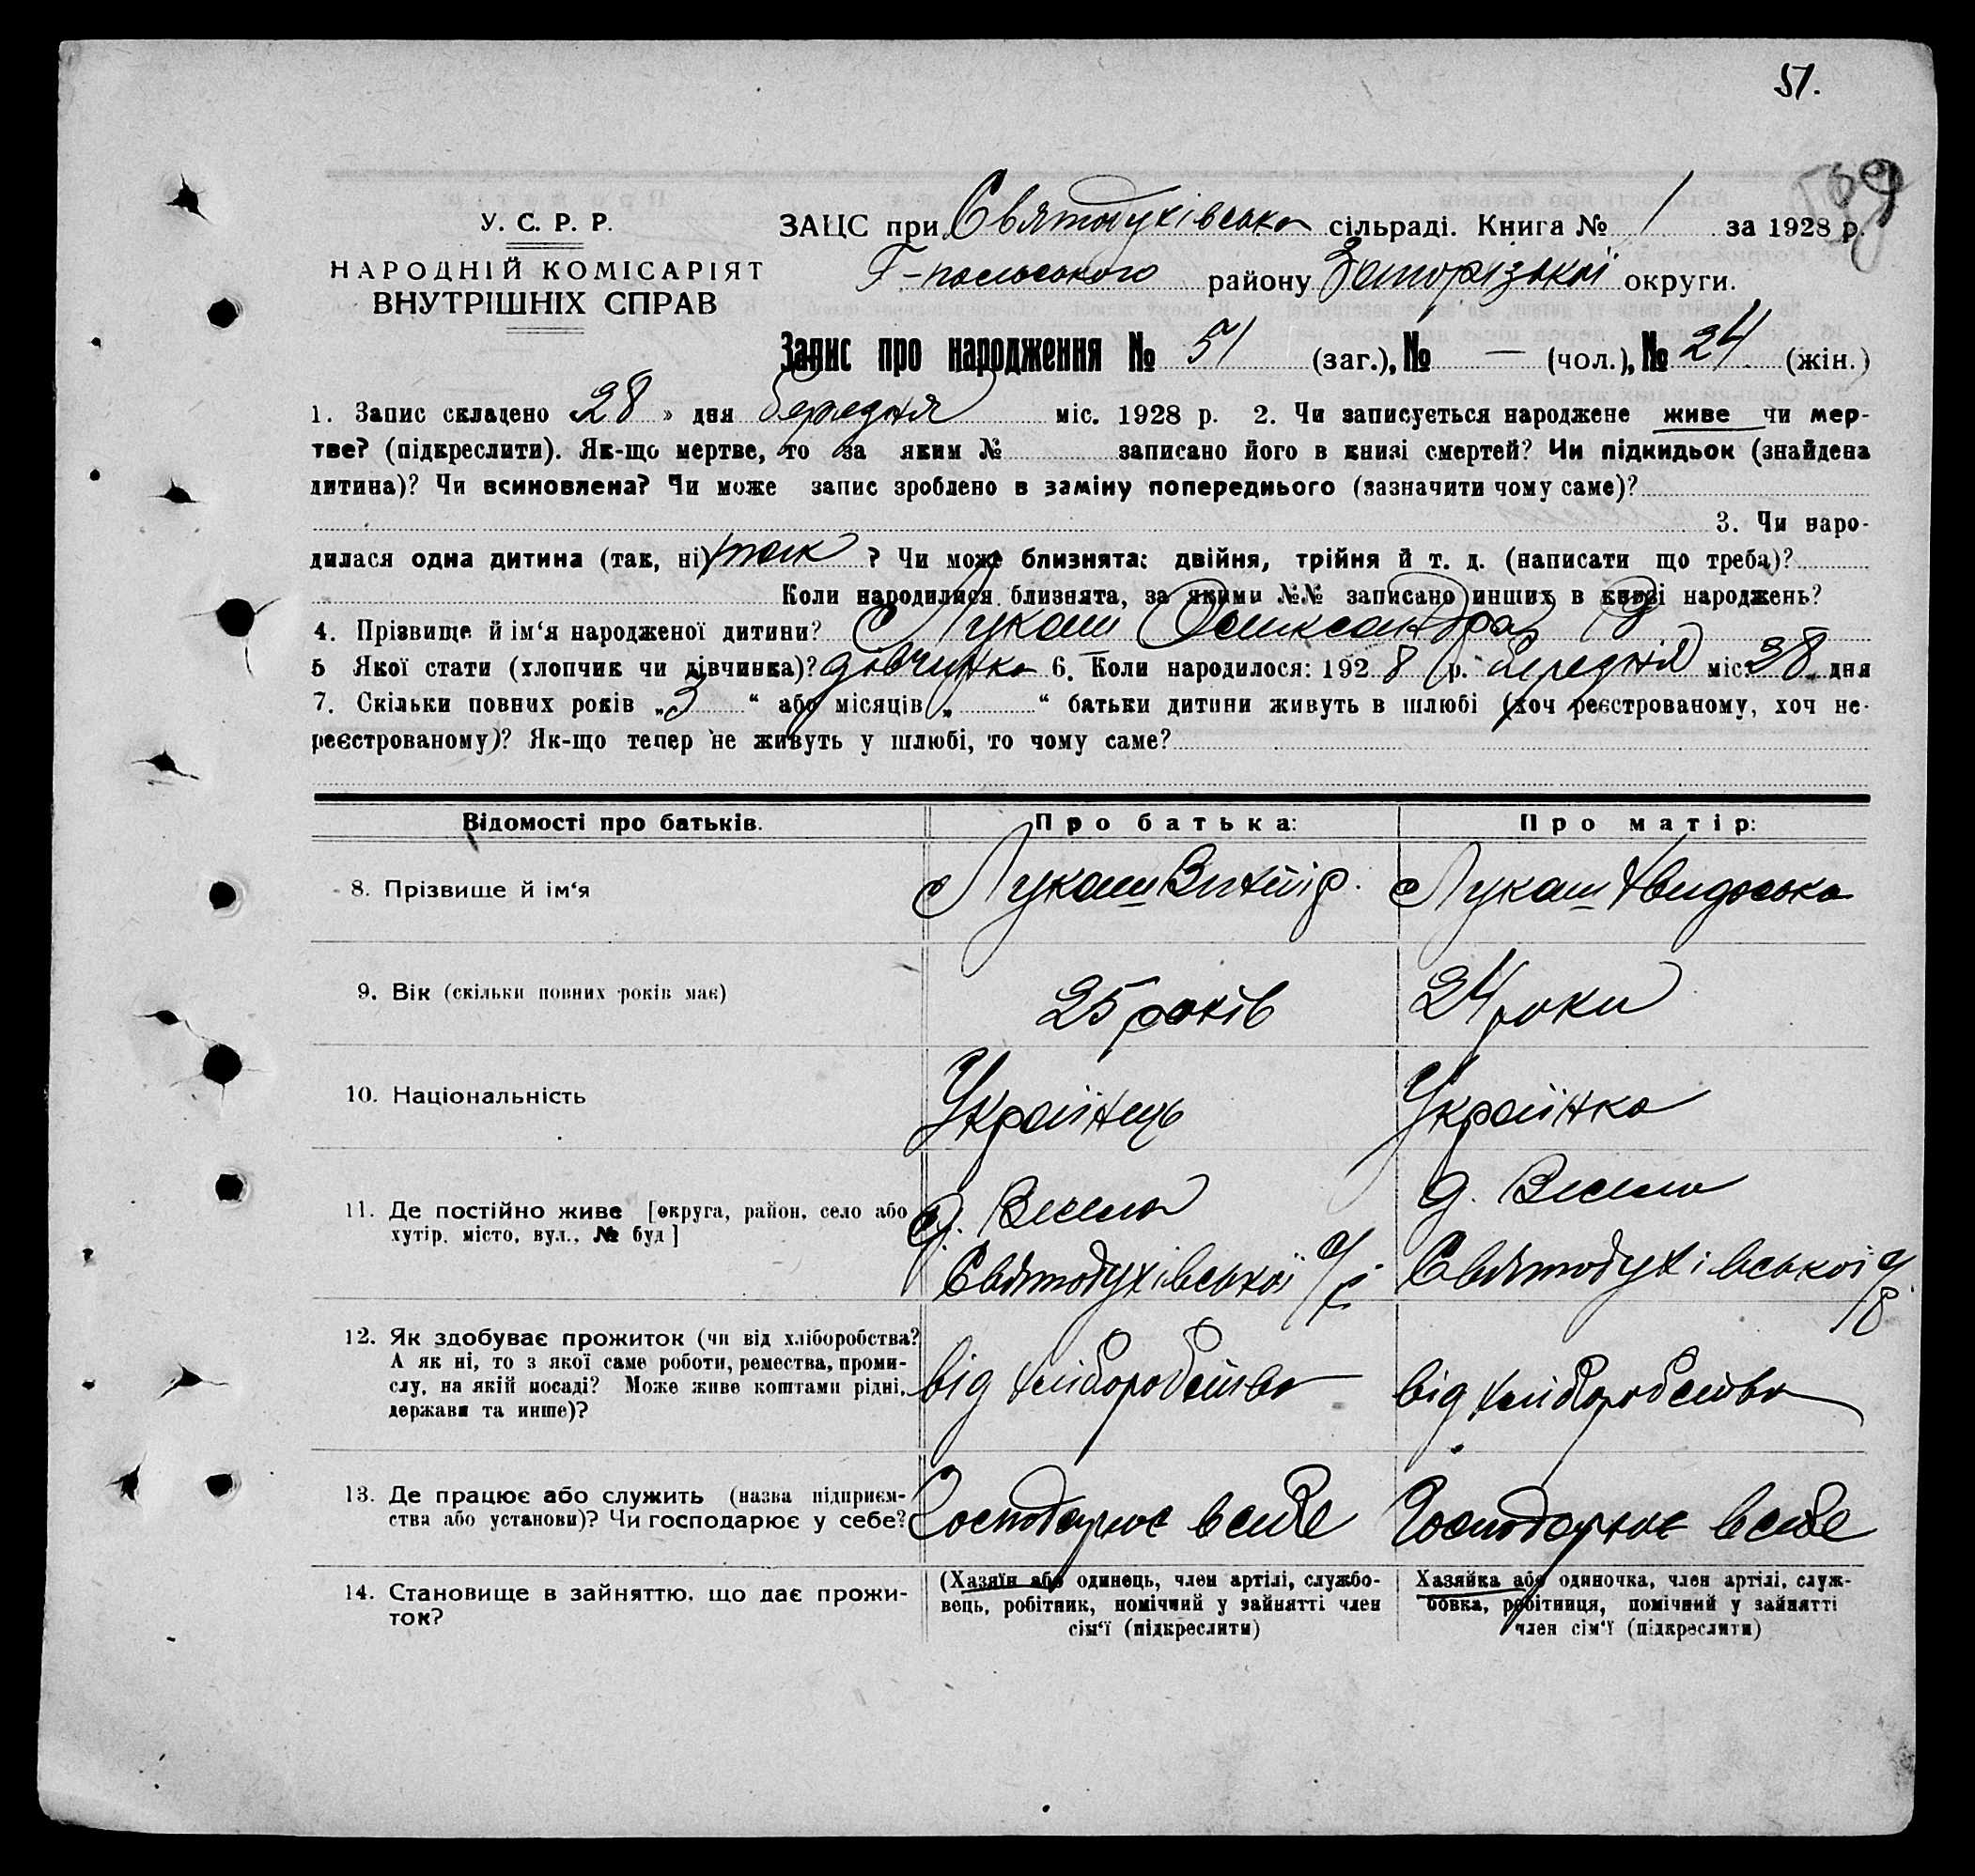 51.
У. С. Р. Р.
НАРОДНІЙ КОМІСАРІЯТ
ВНУТРІШНІХ СПРАВ
ЗАЦС при Святодухівська сільраді. Книга № 1 за 1928 р.
Г-польського району Запорізької округи.
Запис про народження № 51 (заг.), № — (чол.), № 24 (жін.)
1. Запис складено 28 » дня березня міс. 1928 р. 2. Чи записується народжене живе чи мер-
тве? (підкреслити). Як-що мертве, то за яким № записано його в книзі смертей? Чи підкидьок (знайдена
дитина)? Чи всиновлена? Чи може запис зроблено в заміну попереднього (зазначити чому саме)?
3. Чи наро-
дилася одна дитина (так, ні) так ? Чи може близнята: двійня, трійня й т. д. (написати що треба)?
Коли народилися близнята, за якими №№ записано инших в книзі народжень?
4. Прізвище й ім‘я народженої дитини? Лукаш Олександра
5 Якої стати (хлопчик чи дівчинка)? дівчинка 6. Коли народилося: 1928 р. березня міс. 28 дня
7. Скільки повних років „3“ або місяців „ “ батьки дитини живуть в шлюбі (хоч реєстрованому, хоч не-
реєстрованому)? Як-що тепер не живуть у шлюбі, то чому саме?
Відомості про батьків. Про батька: Про матір:
8. Прізвище й ім‘я Лукаш Лукаш
9. Вік (скільки повних років має) 25 років 24 роки
10. Національність Українець Українка
11. Де постійно живе [округа, район, село або
хутір, місто, вул., № буд]
д. Весела
Святодухівської с/р
д. Весела
Святодухівської с/р
12. Як здобуває прожиток (чи від хліборобства?
А як ні, то з якої саме роботи, ремества, проми-
слу, на якій посаді? Може живе коштами рідні,
держави та инше)?
від хліборобства від хліборобства
13. Де працює або служить (назва підприєм-
ства або установи)? Чи господарює у себе?
Господарює в себе Господарює в себе
14. Становище в зайняттю, що дає прожи-
ток?
(Хазяїн або одинець, член артілі, службо-
вець, робітник, помічний у зайнятті член
сім‘ї (підкреслити)
Хазяйка або одиночка, член артілі, служ-
бовка, робітниця, помічний у зайнятті
член сім‘ї (підкреслити)